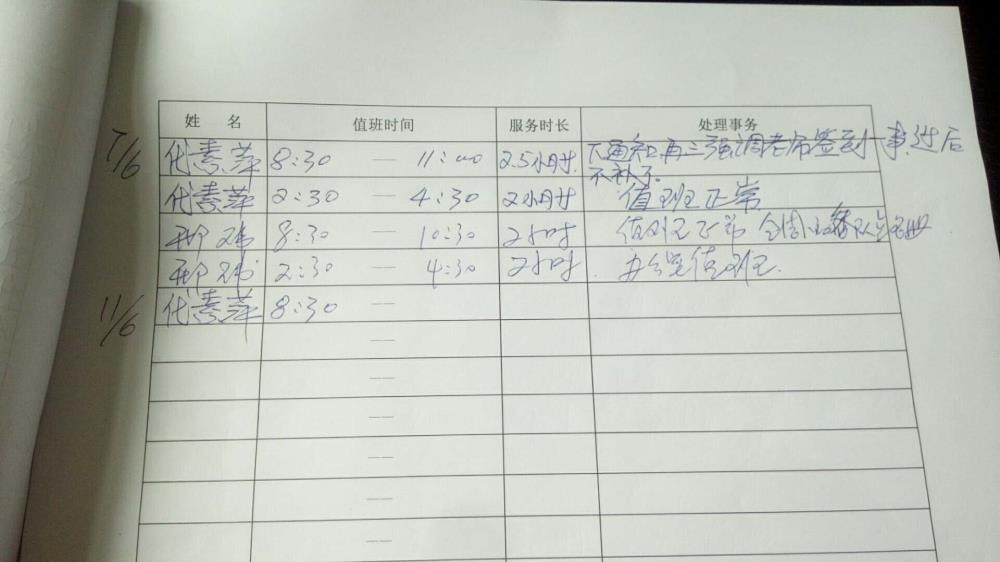 姓 名 值班时间 服务时长 处理事务
7/6 代素萍 8:30 — 11:00 2.5小时 下通知,再三强调老师签到一事,过后
不补了。
代素萍 2:30 — 4:30 2小时 值班正常
8:30 — 10:30 2小时 值班正常
2:30 — 4:30 2小时 办公室值班
11/6 代素萍 8:30 —
—
—
—
—
—
—